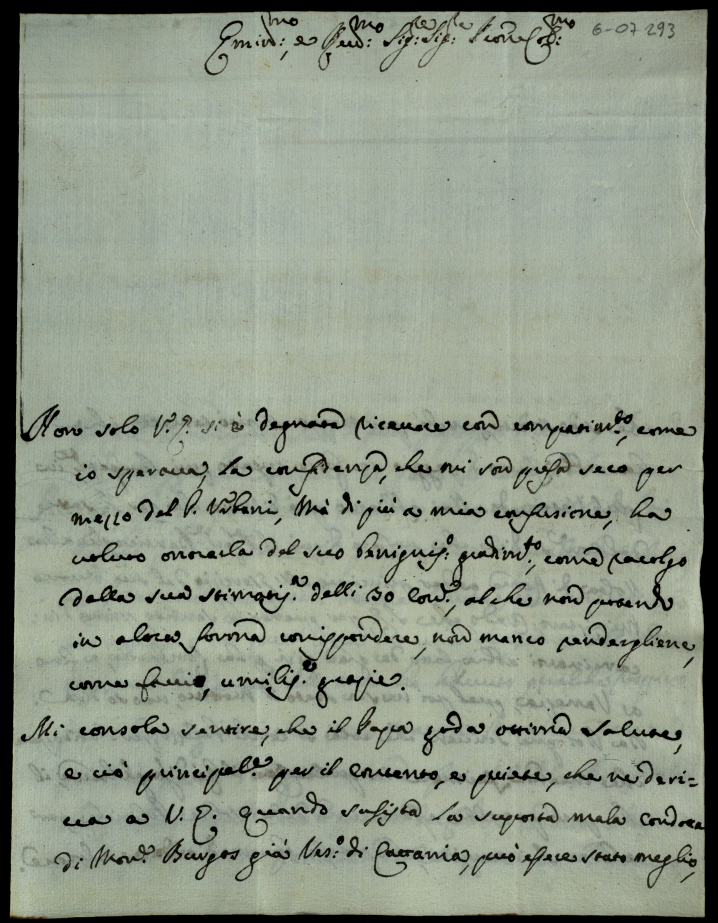 Emin.mo: e Rev.mo: Sig:re Sig:re Pron Col:mo
6-07 293
Non solo V.E. si è degnata ricevere con compatim.to, come
io sperava, la confidenza, che mi son presa seco per
mezzo del P. Urbani, Mà di più a mia confusione, ha
voluto onorarla del suo benignis.o gradim.to, come racolgo
dalla sua stimatis.a delli 30 Corr.e, al che non potendo
in altra forma corrispondere, non manco rendergliene,
come faccio, umilis.e grazie.
Mi consola sentire, che il Papa goda ottima salute,
e ciò principal.e per il contento, e quiete, che ne deri-
va a V.E. Quando susista la suposta mala condota
di Mon.r Burgos già Ves.o di Cattania, può essere stato meglio,